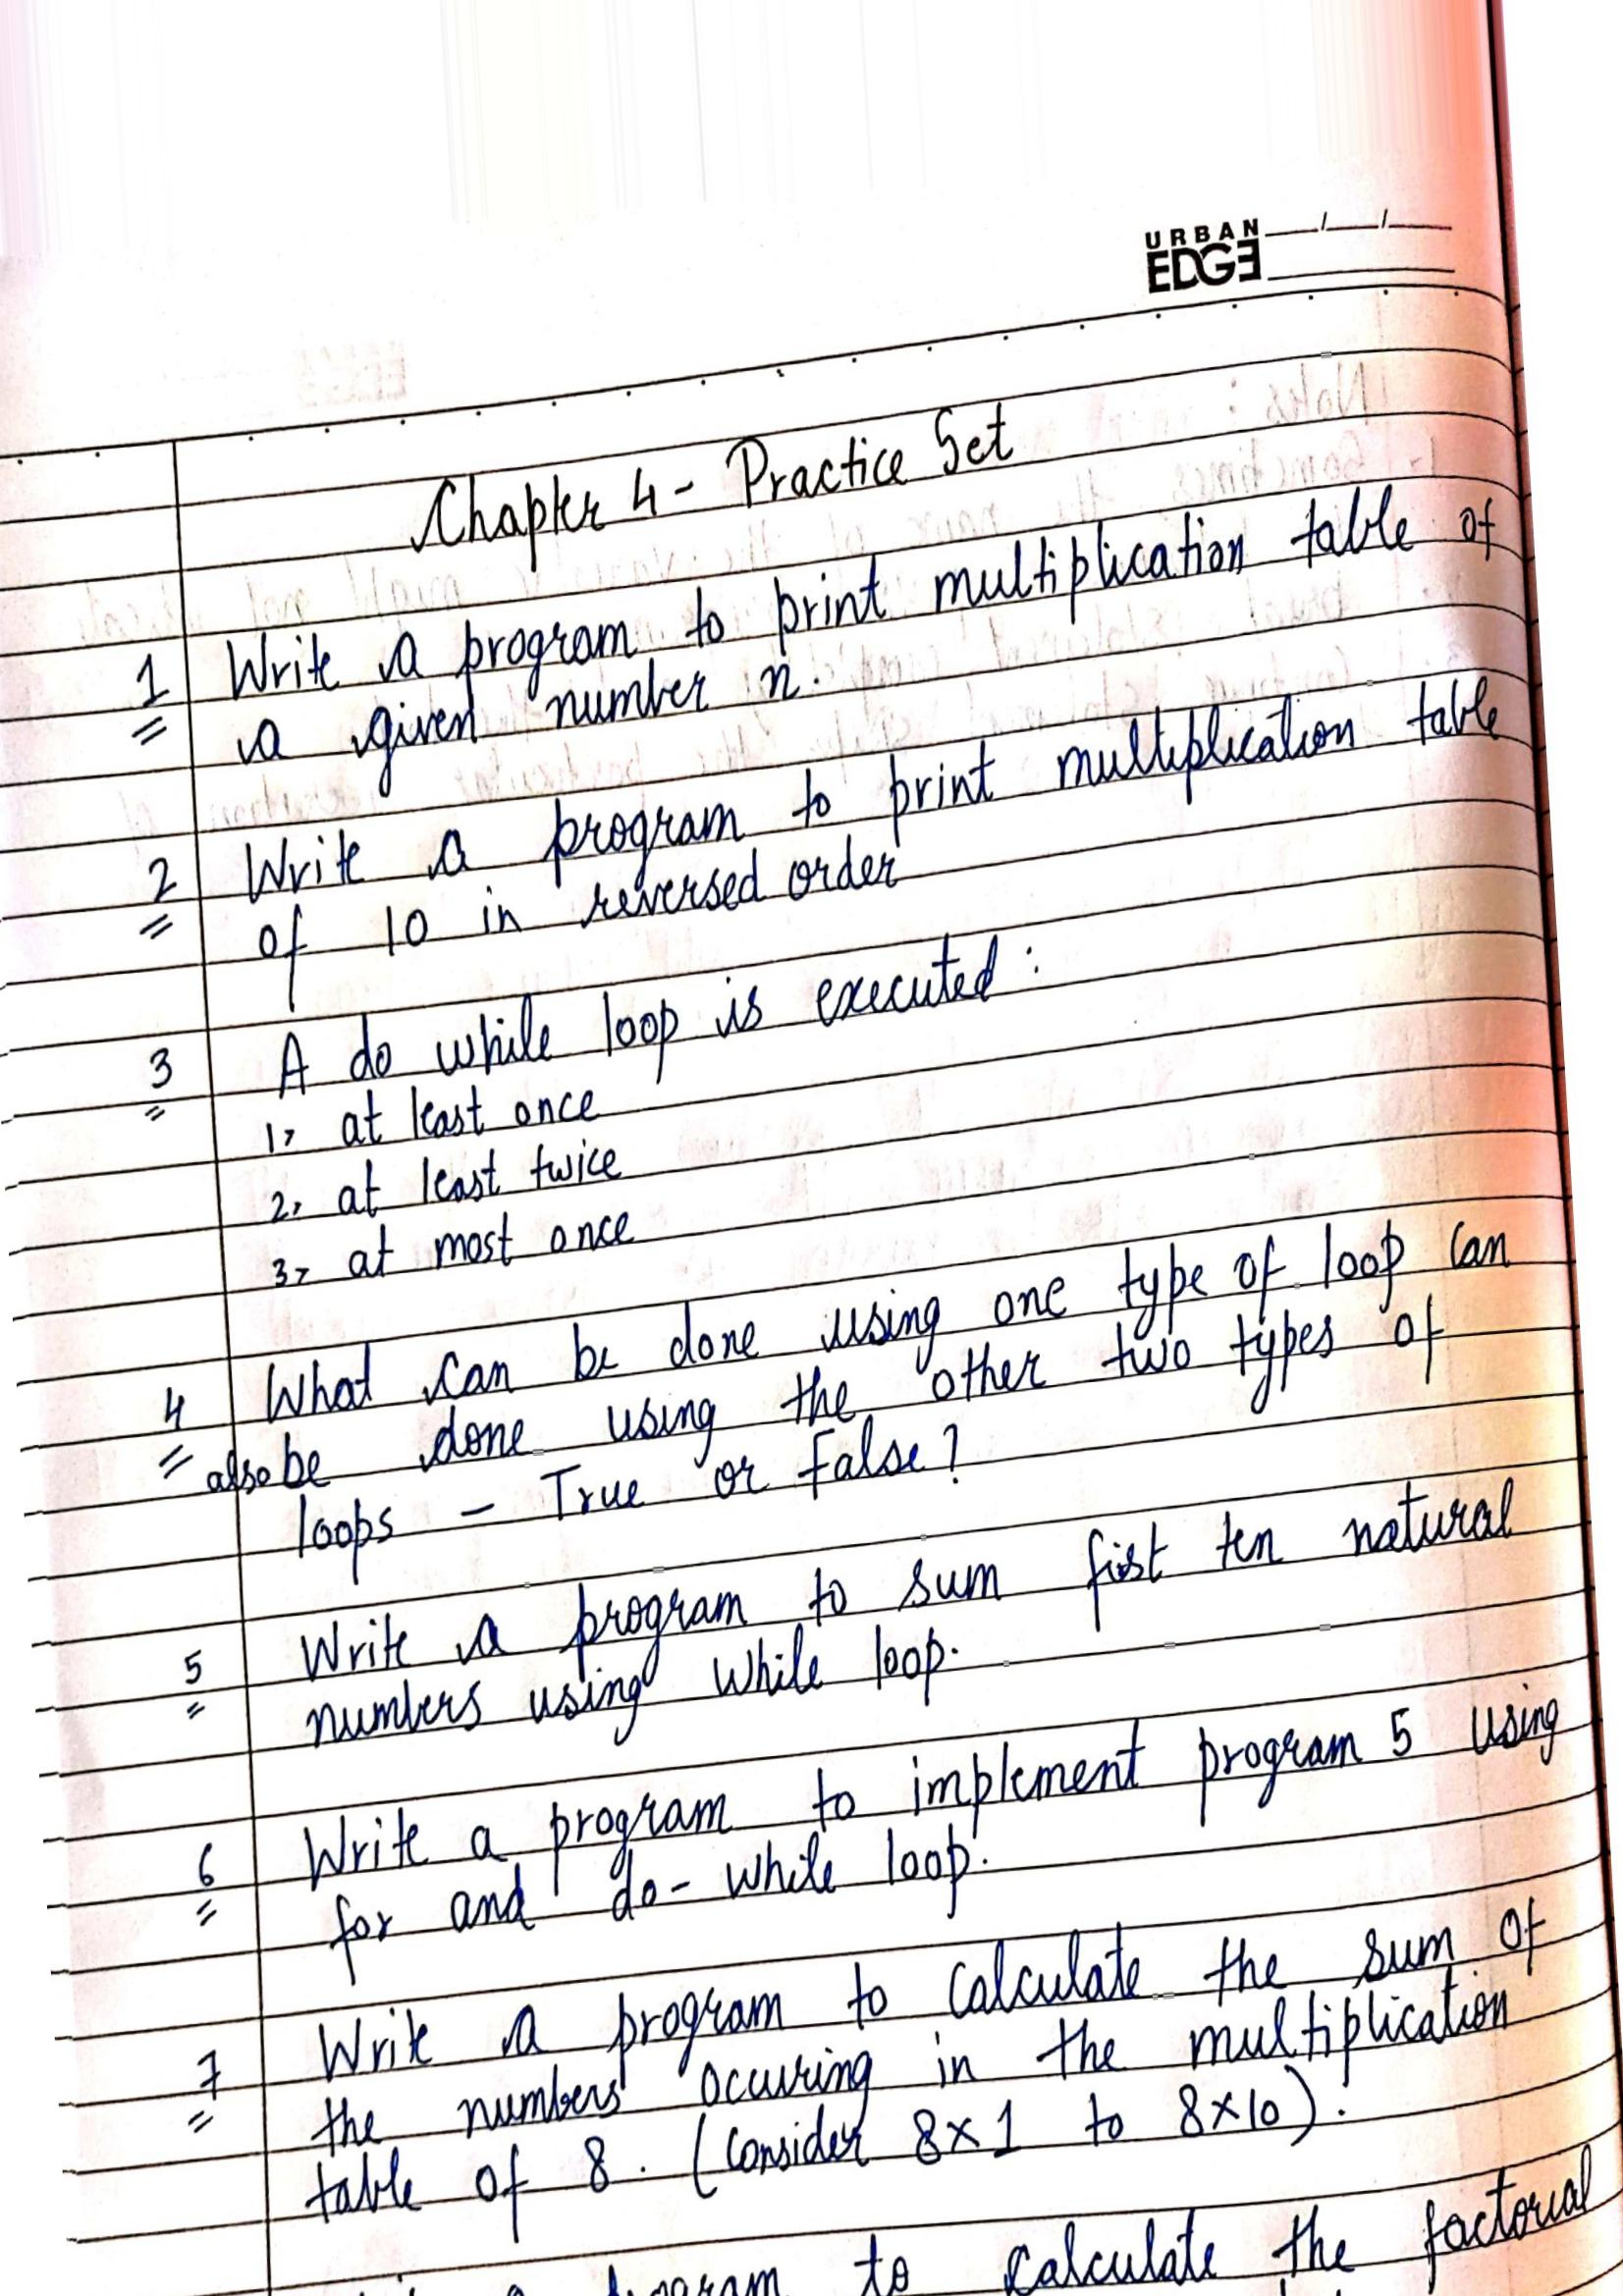 URBAN
EDGE
Chapter 4 - Practice Set
1 Write a program to print multiplication table of
a given number n.
2 Write a program to print multiplication table
of 10 in reversed order
3 A do while loop is executed :
1, at least once
2, at least twice
3, at most once
4 What can be done using one type of loop can
also be done using the other two types of
loops - True or False?
5 Write a program to sum first ten natural
numbers using while loop.
6 Write a program to implement program 5 using
for and do-while loop.
7 Write a program to calculate the sum of
the numbers occuring in the multiplication
table of 8. (Consider 8×1 to 8×10).
to calculate the factorial